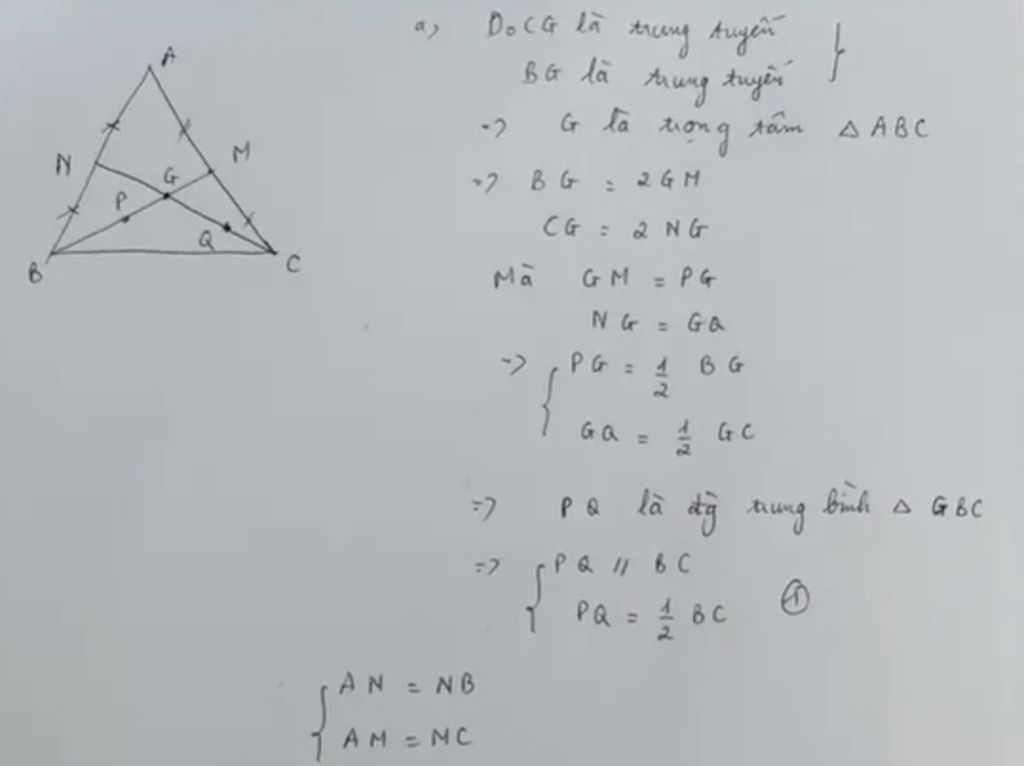 A
N
M
G
P
Q
B
C
a, Do CG là trung tuyến
BG là trung tuyến
=> G là trọng tâm △ ABC
=> BG = 2GM
CG = 2NG
Mà GM = PG
NG = GQ
=> PG = 1/2 BG
GQ = 1/2 GC
=> PQ là đg̀ trung bình △ GBC
=> PQ // BC
PQ = 1/2 BC ①
AN = NB
AM = MC